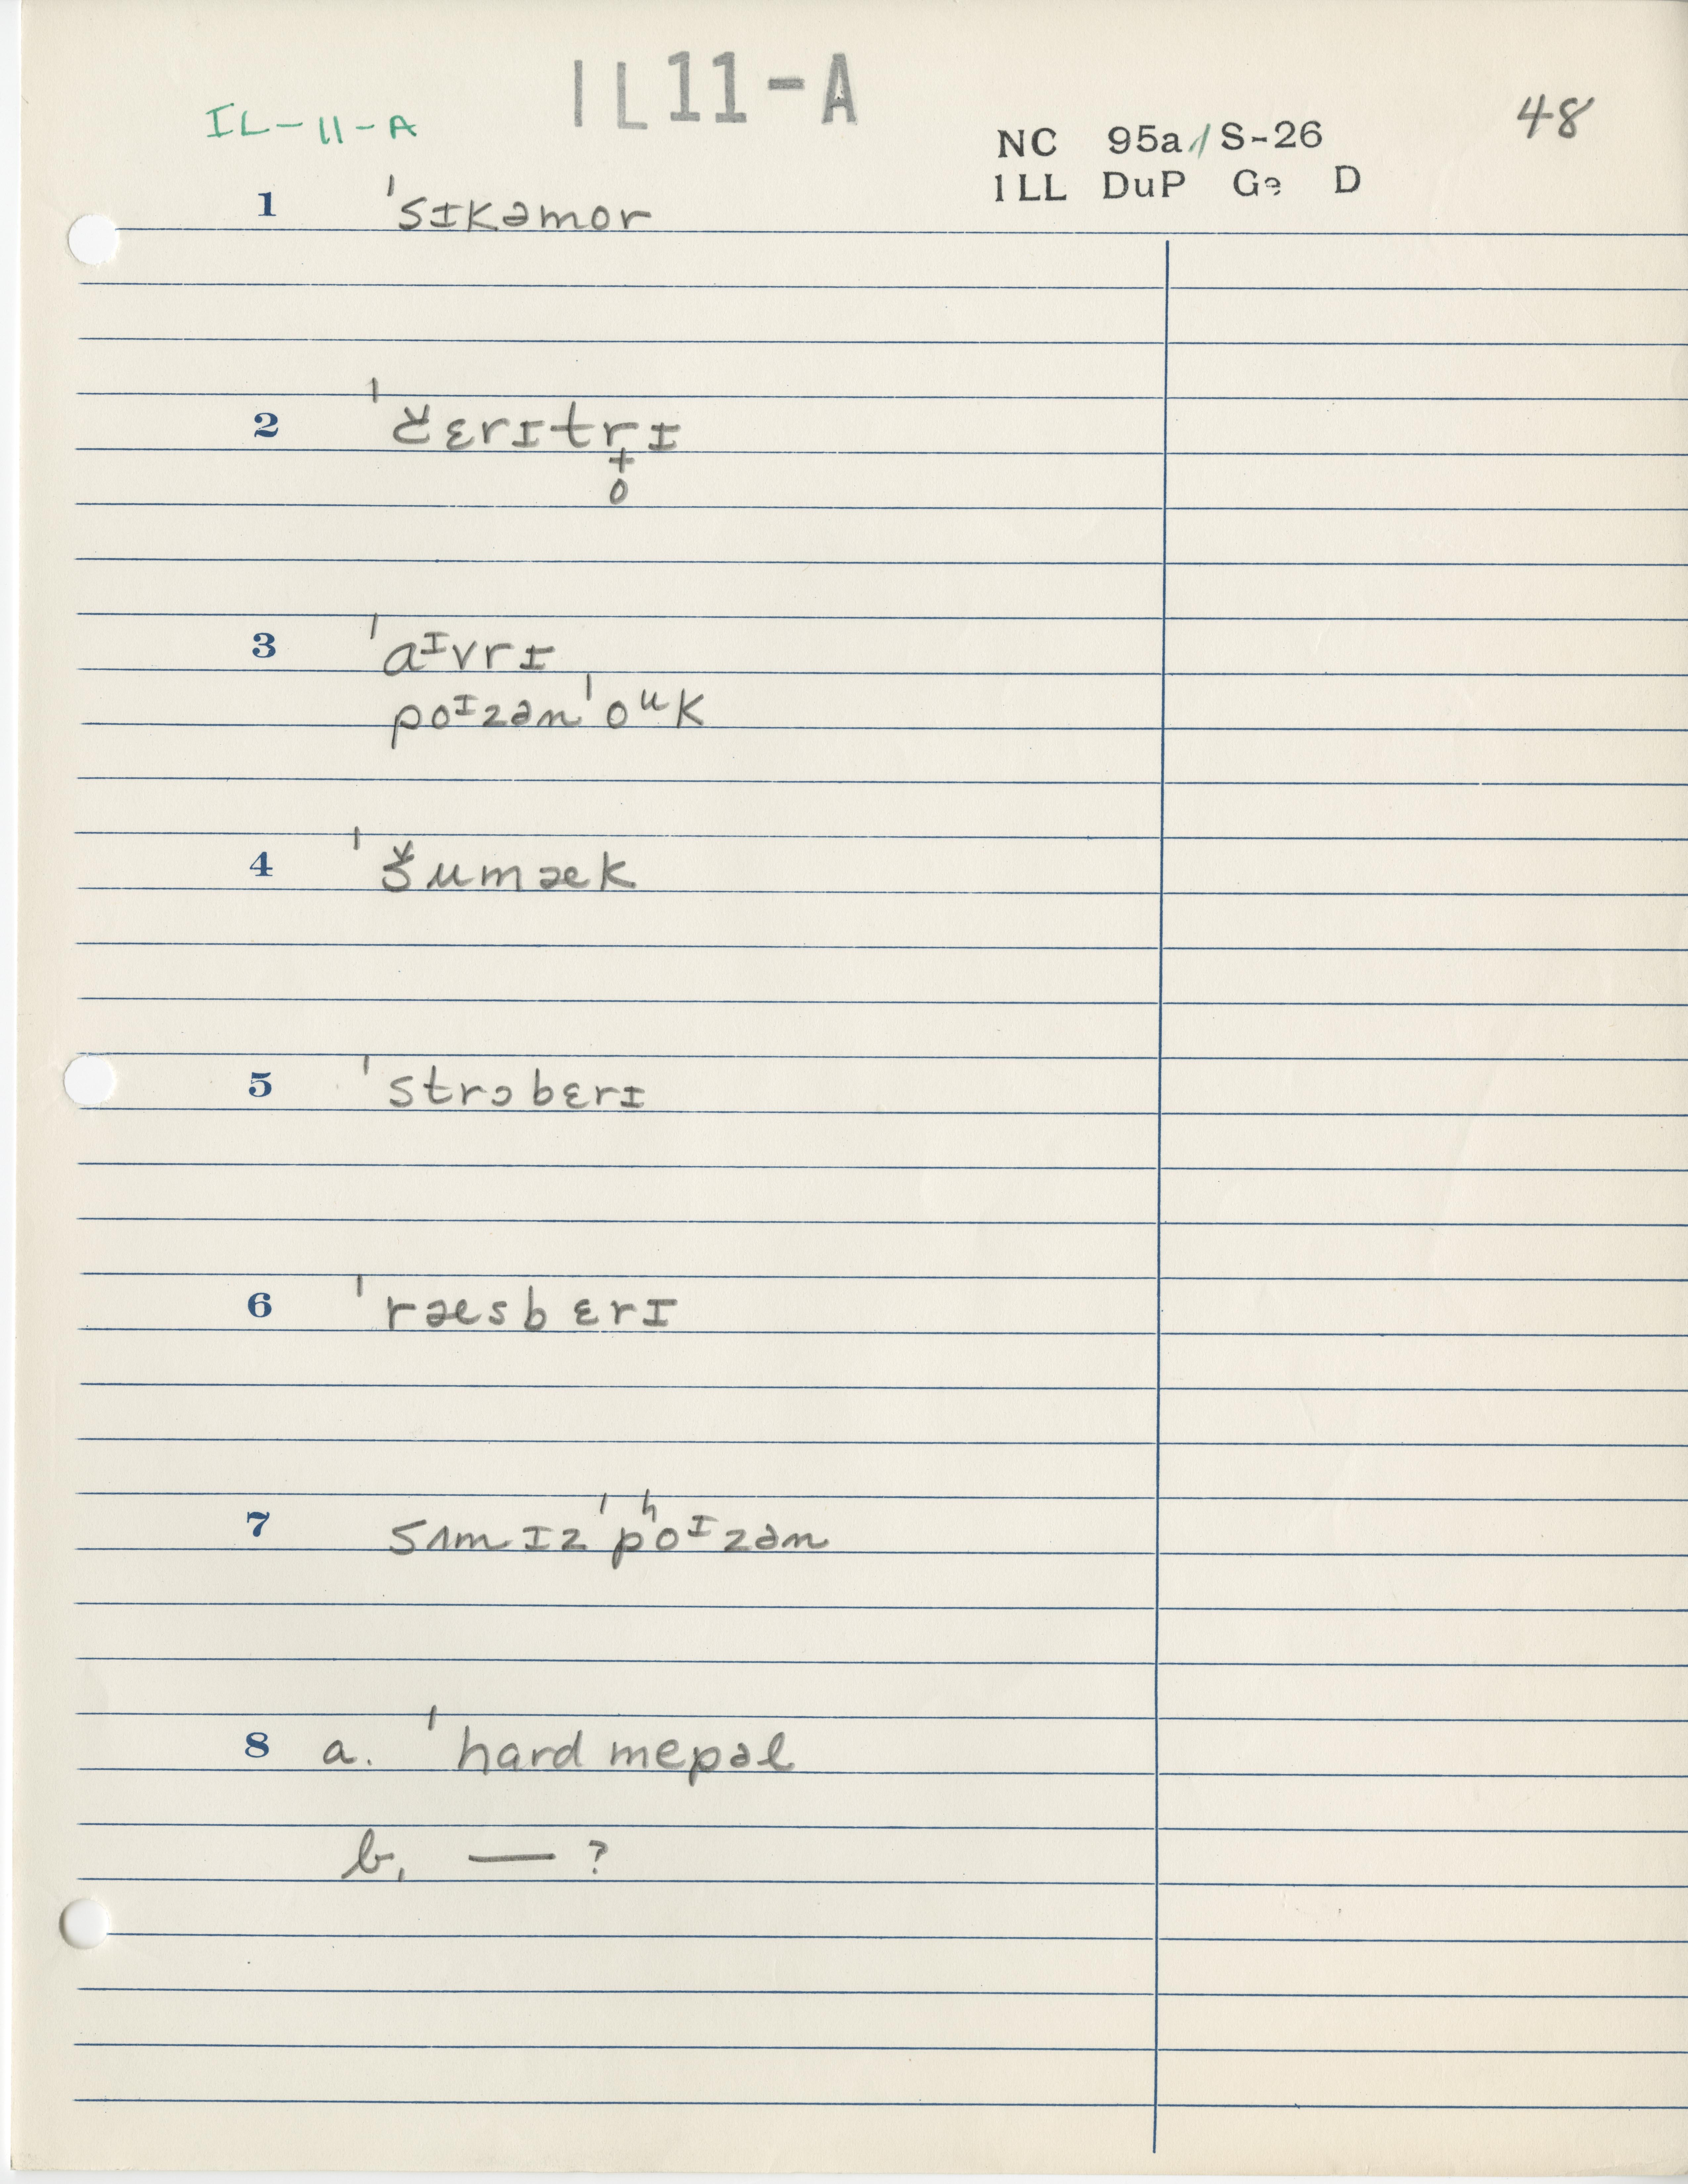 IL11-A
IL-11-A
48
NC 95a/S-26
1LL DuP Ge D
1 ˈsɪkəmor
2 ˈčɛrɪtr̥̟ɪ
3 ˈaᶦvrɪ
poᶦzənˈoᵘk
4 ˈšumæk
5 ˈstrɔbɛrɪ
6 ˈræsbɛrɪ
7 sʌmɪzˈpʰoᶦzən
8 a. ˈhardmepəl
b. — ?